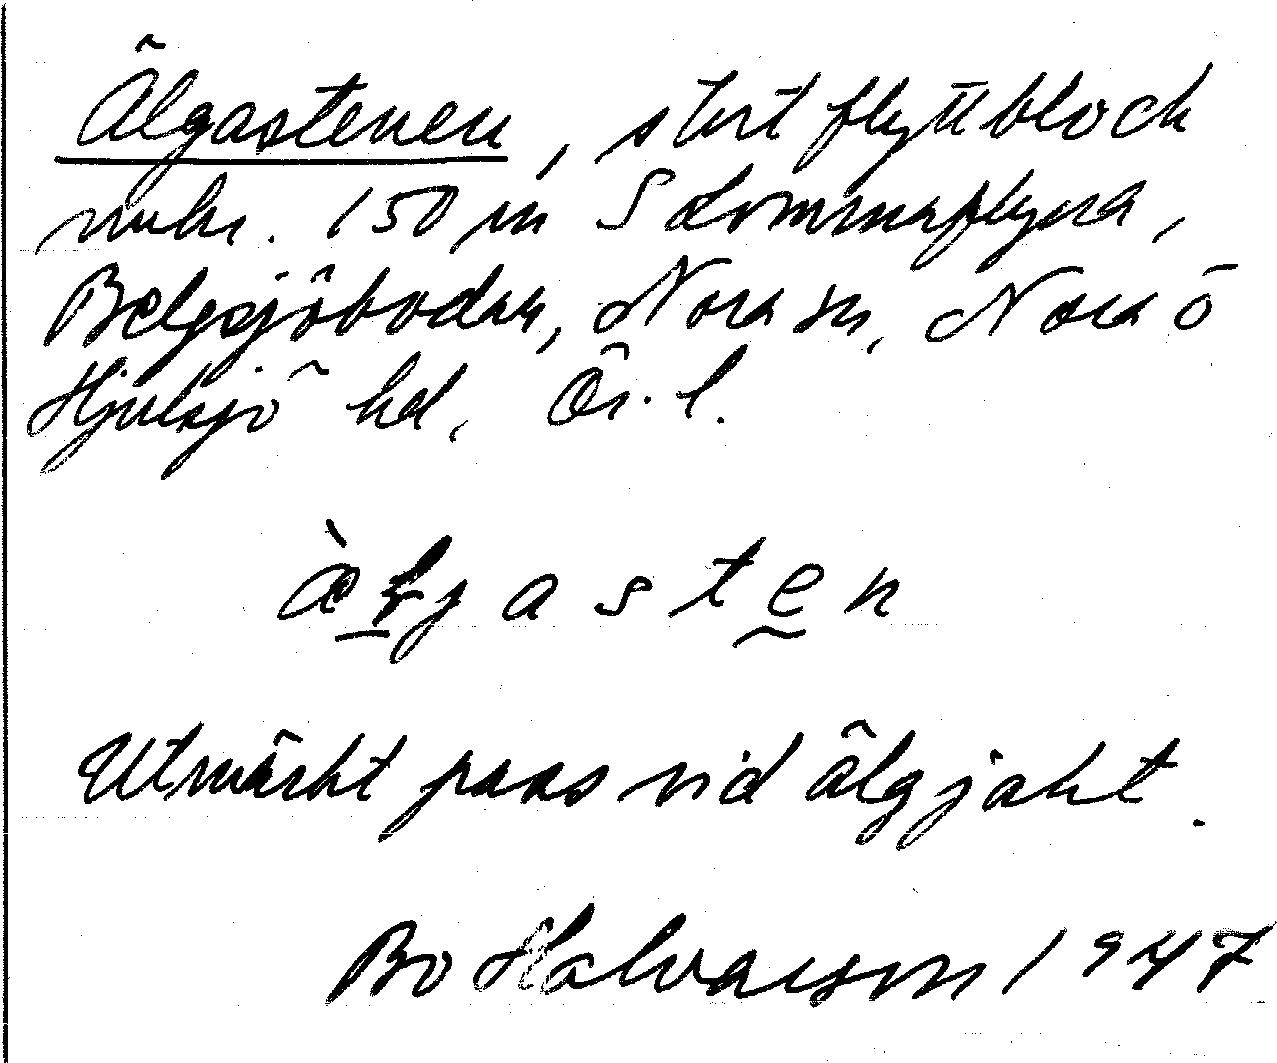 Älgastenen, stort flyttblock
nuhr. 150 m S Lommaflyena,
Belgsjöbodar, Nora sn, Nora o
Hjulsjö hd, Ör. l.
àlgasten
Utmärkt pass vid älgjakt.
Bo Halvarson 1947